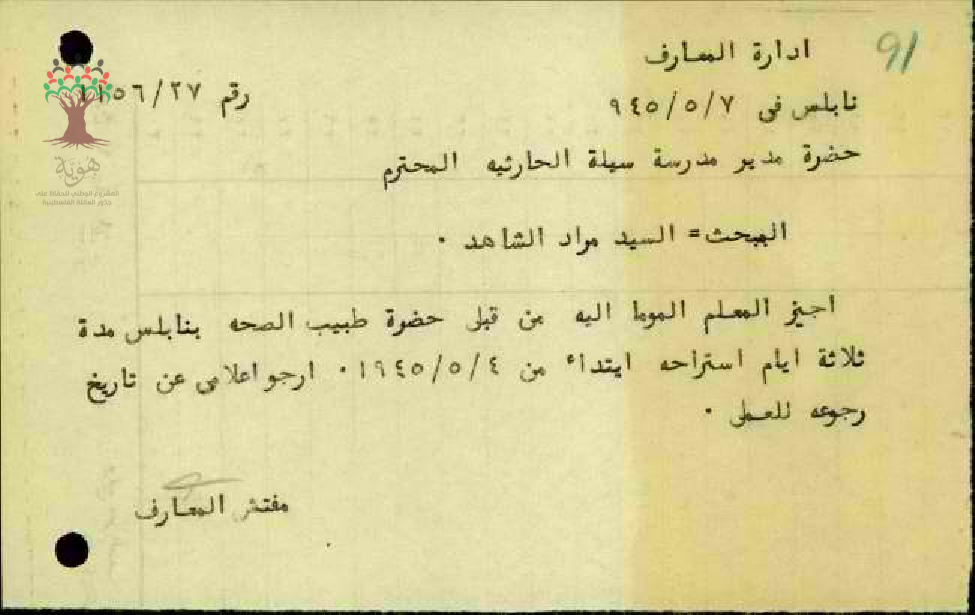 91
ادارة المعارف
نابلس في ٩٤٥/٥/٧
رقم ١١٥٦/٢٧
حضرة مدير مدرسة سيلة الحارثيه المحترم
المبحث= السيد مراد الشاهد .
اجيز المعلم الموما اليه من قبل حضرة طبيب الصحه بنابلس مدة
ثلاثة ايام استراحه ابتداء من ١٩٤٥/٥/٤ . ارجو اعلامي عن تاريخ
رجوعه للعمل .
مفتش المعارف
هوية
المشروع الوطني للحفاظ على
جذور العائلة الفلسطينية